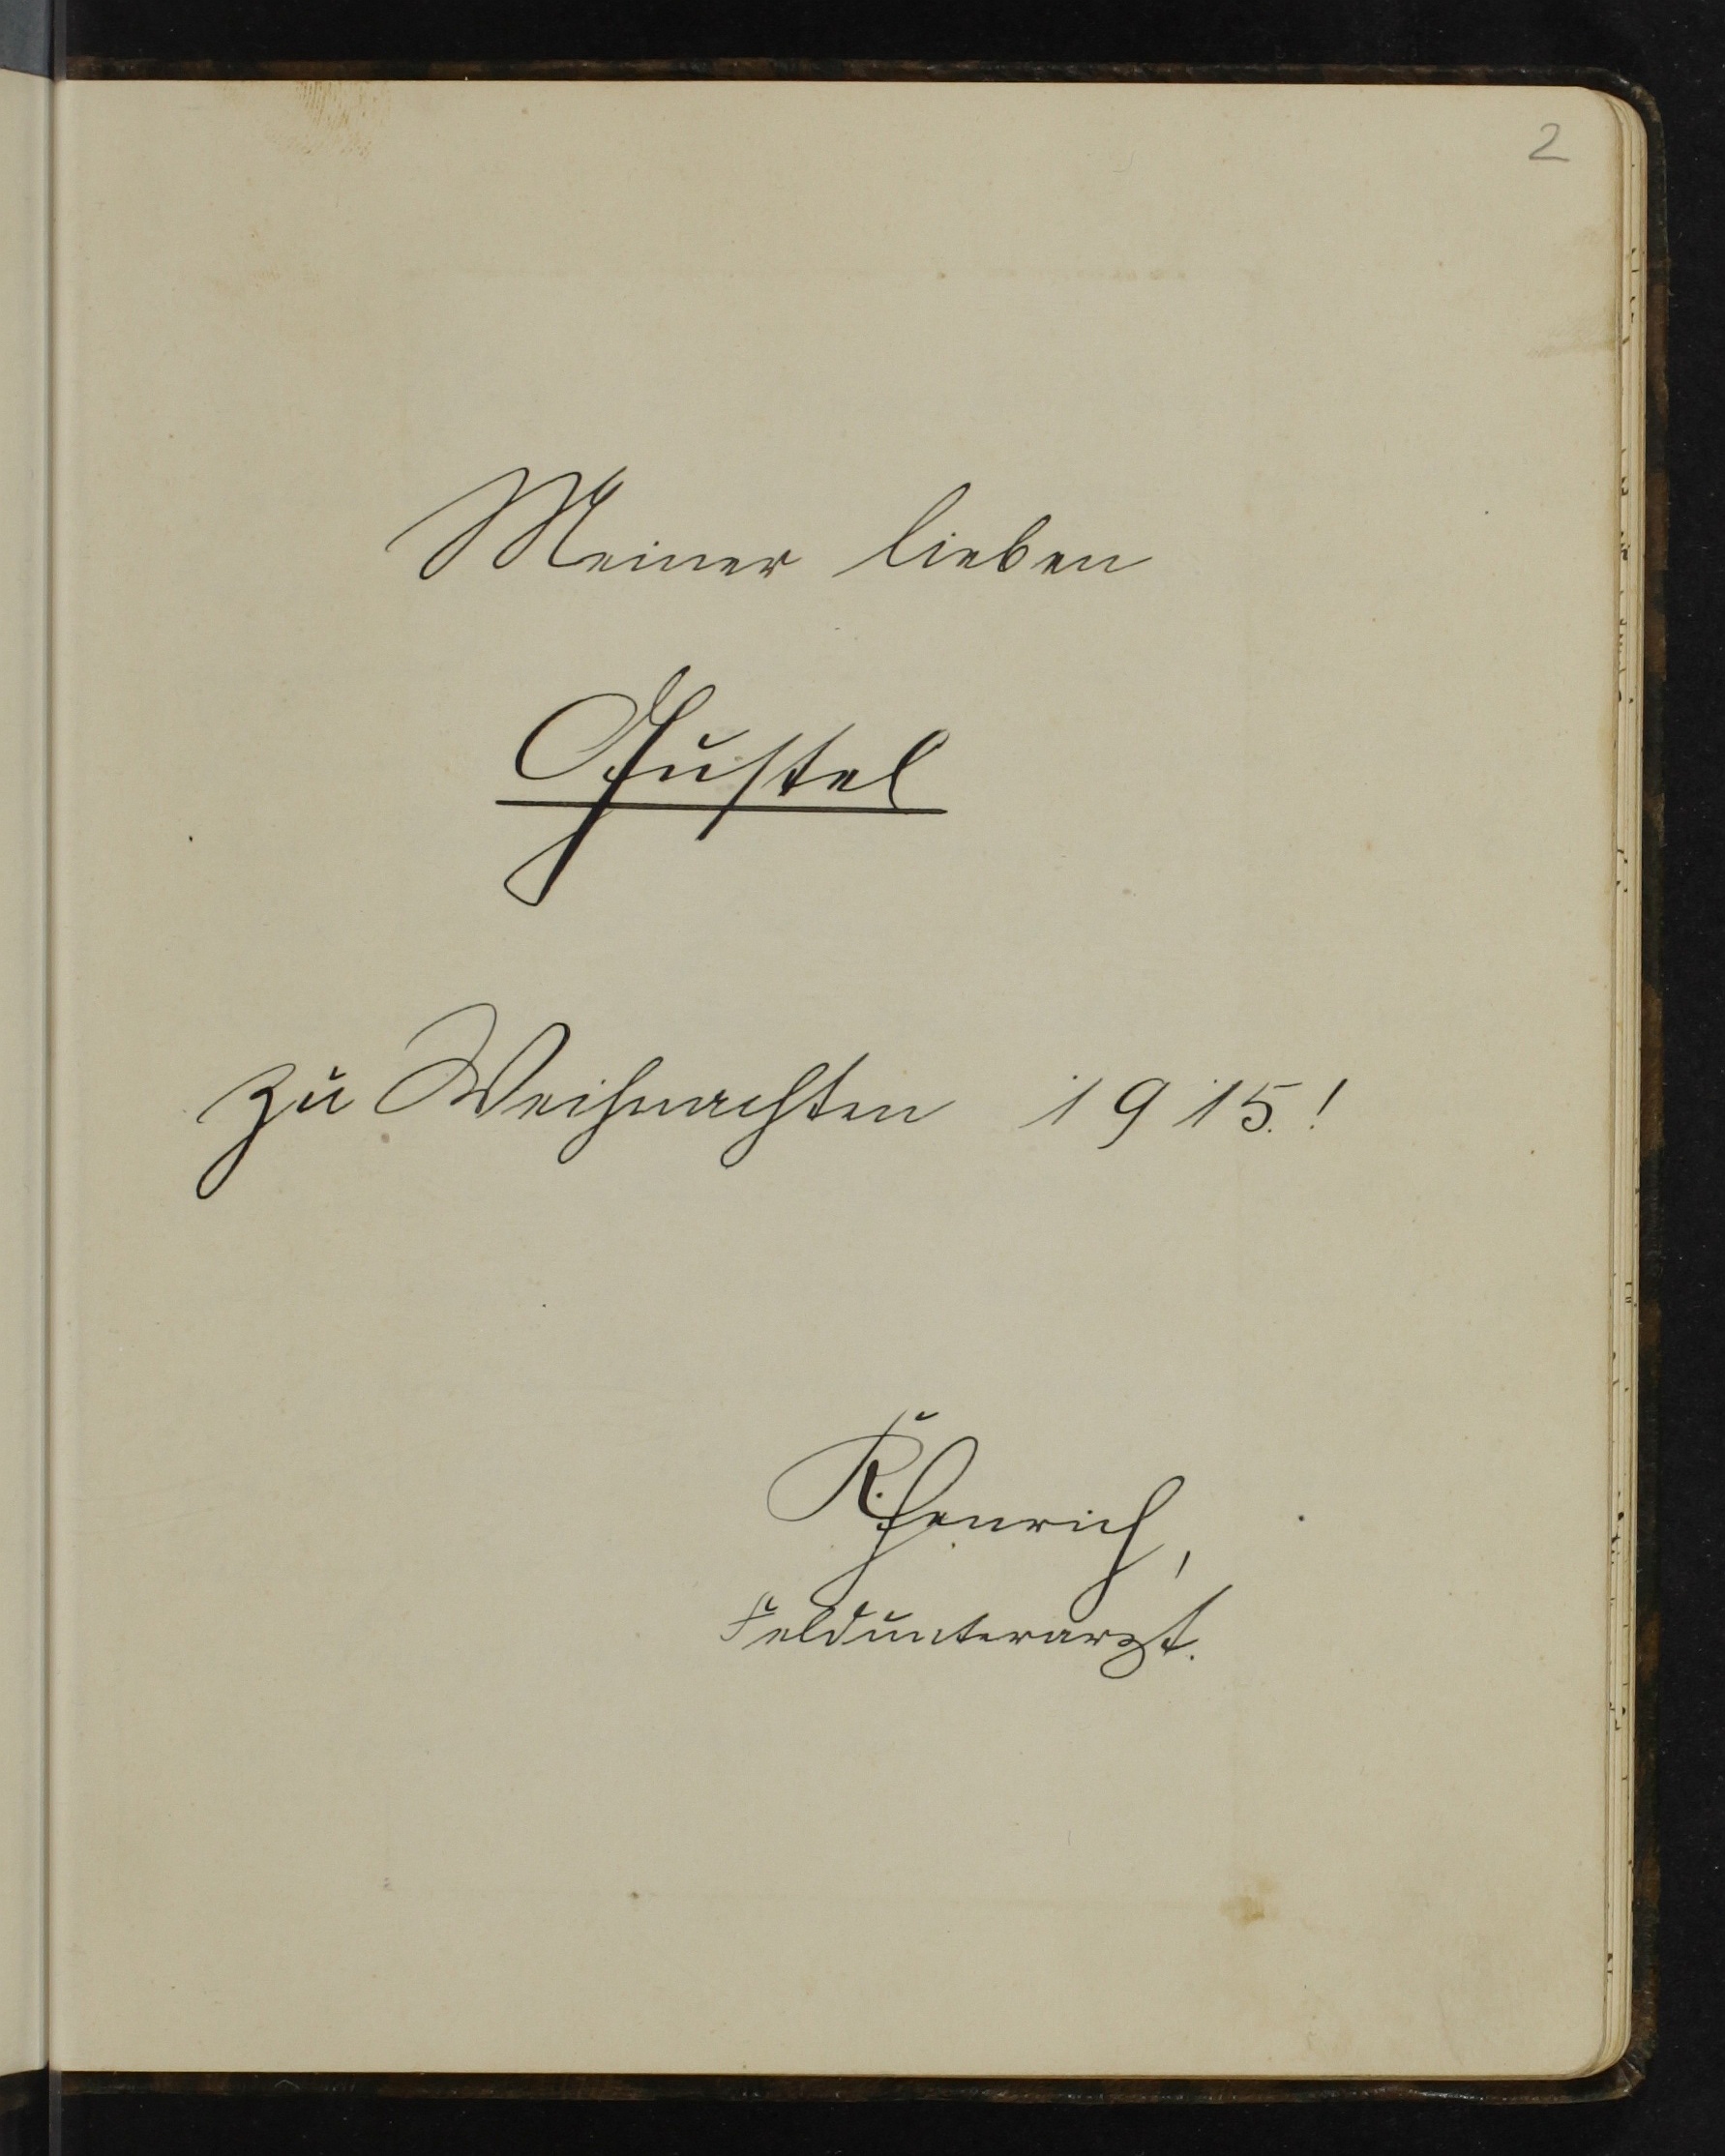 2
Meiner lieben
Gustel
zu Weihnachten 1915.!
K. Henrich,
Feldunterarzt.